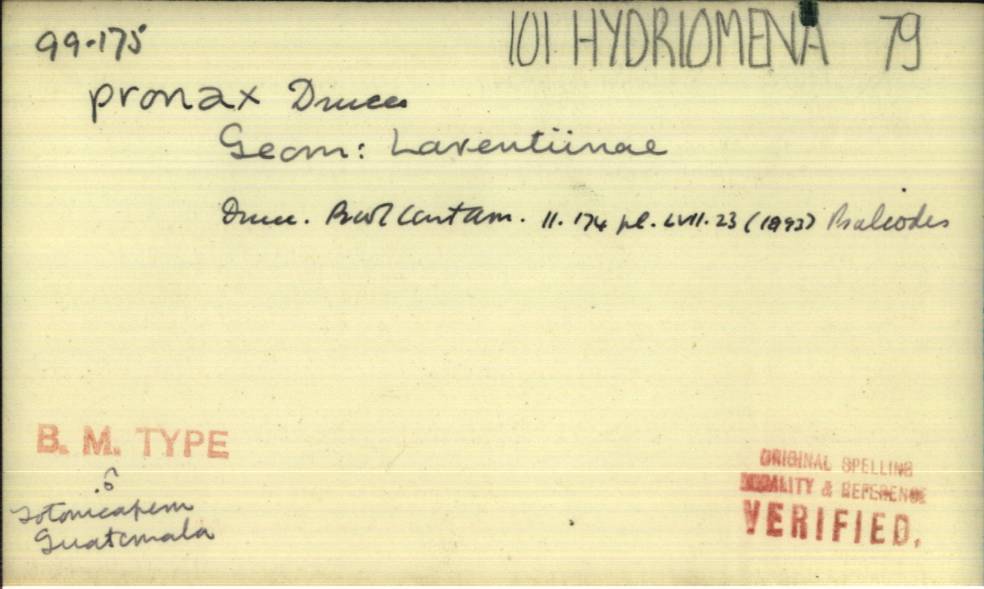 99.175 101 HYDRIOMENA 79
pronax Druce
Geom: Larentiinae
Druce. Biol Cent Am. II. 174 pl. LVII. 23 (1893) Psaliodes
B. M. TYPE
Totonicapam
Guatemala
ORIGINAL SPELLING
LOCALITY & REFERENCE
VERIFIED.